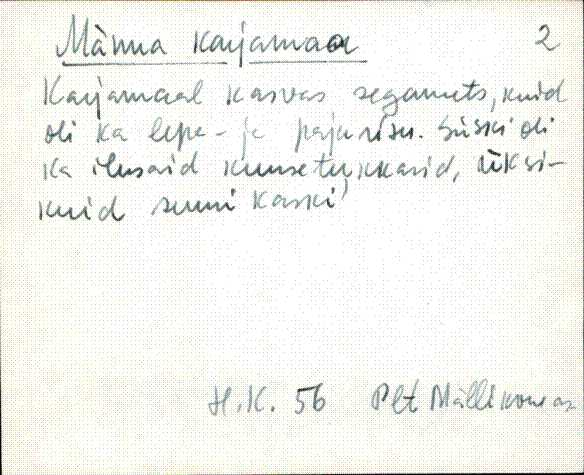 Männa Karjamaa 2
Karjamaal kasvas segamets, kuid
oli ka lepa- ja pajurisu. Siiski oli
ka ilusaid kuusetukkasid, üksi-
kuid suuri kaski)
H.K. 56 Plt